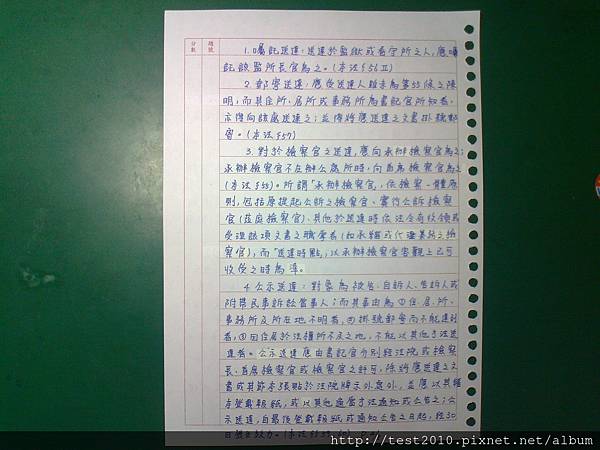 分數
題號
1. 囑託送達:送達於監獄或看守所之人,應囑
託該監所長官為之。(本法§56II)
2. 郵寄送達:應受送達人雖未為第55條之陳
明,而其住所、居所或事務所為書記官所知者,
亦得向該處送達之;並得將應送達之文書掛號郵
寄。(本法§57)
3. 對於檢察官之送達,應向承辦檢察官為之;
承辦檢察官不在辦公處所時,向首席檢察官為之
(本法§58)。所謂「承辦檢察官」,依檢察一體原
則,包括原提起公訴之檢察官、實行公訴檢察
官(蒞庭檢察官)、其他於送達時依法令有收領或
受理該項文書之職掌者(如承辦或代理業務之檢
察官),而「送達時點」,以承辦檢察官客觀上已可
收受之時為準。
4. 公示送達:對象為被告、自訴人、告訴人或
附帶民事訴訟當事人;而其事由為①住、居、所、
事務所及所在地不明者,②掛號郵寄而不能達到
者,③因住居於法權所不及之地,不能以其他方法送
達者。公示送達應由書記官分別經法院或檢察
長、首席檢察官或檢察官之許可,除將應送達之文
書或其節本張貼於法院牌示處外,並應以其繕
本登載報紙,或以其他適當方法通知或公告之;公
示送達,自最後登載報紙或通知公告之日起,經30
日發生效力。(本法§59、60)
http://test2010.pixnet.net/album